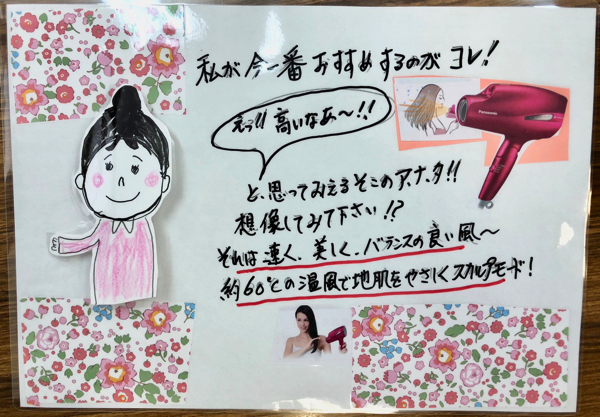 私が今一番おすすめするのがコレ!
えっ!! 高いなあ〜!!
Panasonic
と、思ってみえるそこのアナタ!!
想像してみて下さい!?
それは速く、美しく、バランスの良い風〜
約60℃の温風で地肌をやさしくスカルプモード!